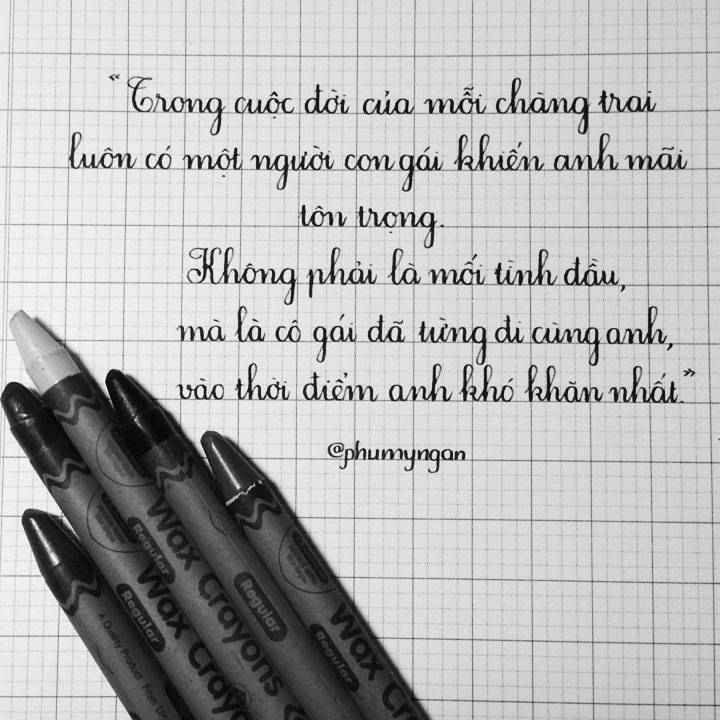 "Trong cuộc đời của mỗi chàng trai
luôn có một người con gái khiến anh mãi
tôn trọng.
Không phải là mối tình đầu,
mà là cô gái đã từng đi cùng anh,
vào thời điểm anh khó khăn nhất."
@phumyngan
Wax Crayons
Regular
Wax Crayons
Regular
Wax Crayons
Regular
Regular
A Quality Product From